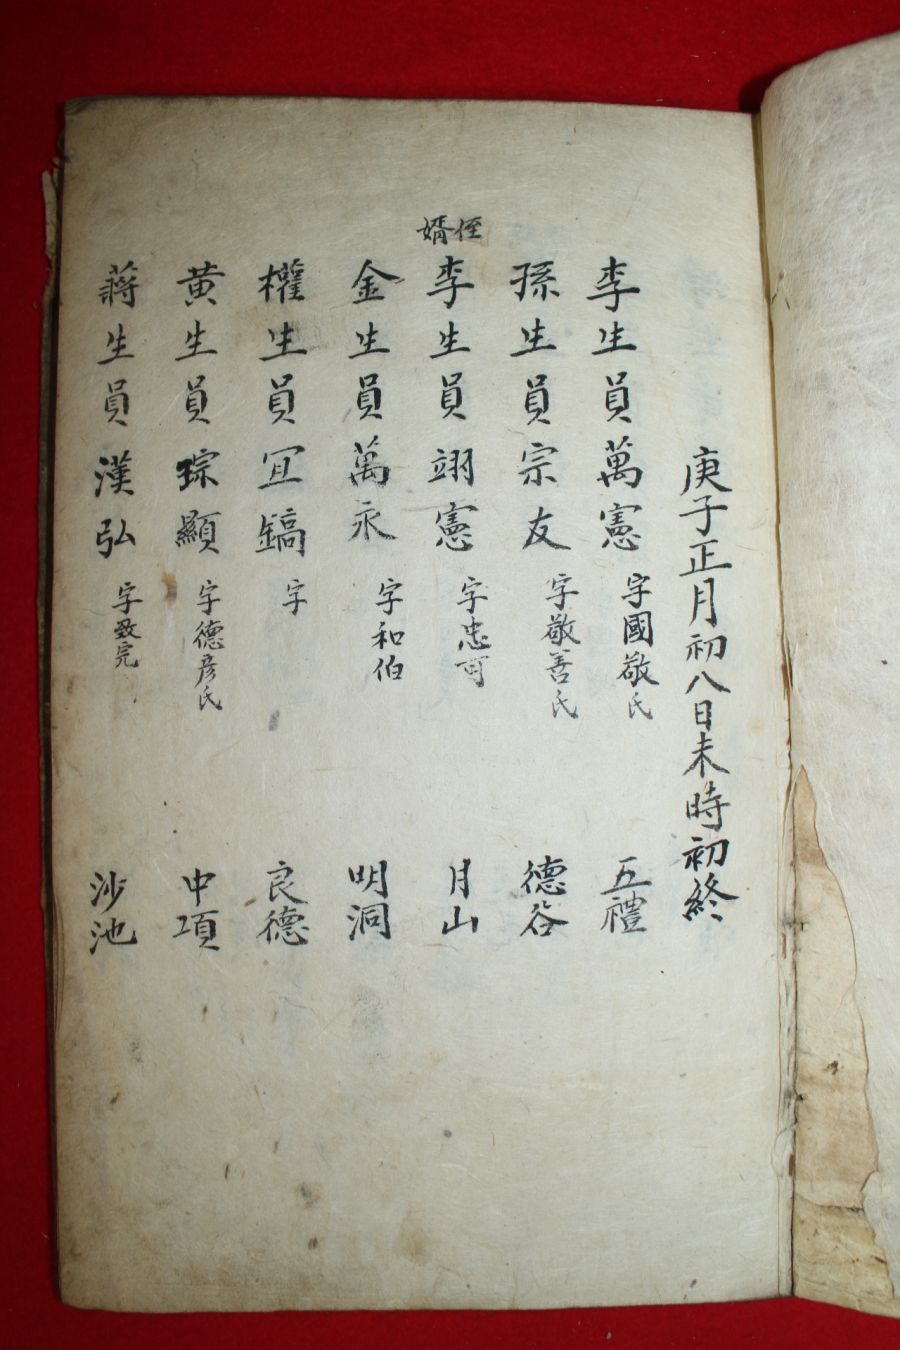 庚子正月初八日未時初終
李生員萬憲 字國敬氏 五禮
孫生員宗友 字敬善氏 德谷
侄婿
李生員翊憲 字忠可 月山
金生員萬永 字和伯 明洞
權生員冝鎬 字 良德
黄生員琮顯 字德彦氏 中項
蔣生員漢弘 字致完 沙池